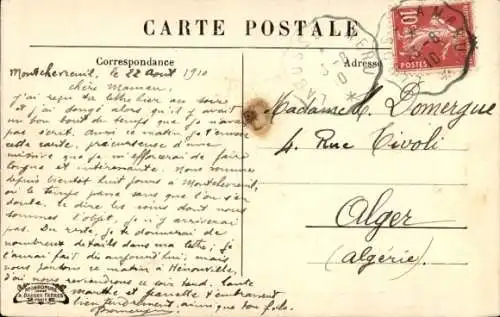 CARTE POSTALE
Correspondance
Adresse
10
Montchevreuil, le 22 août 1910
Chère Maman,
J'ai reçu ta lettre hier au soir
et j'ai songé alors qu'il y avait
un bon bout de temps que je n'avais
pas écrit. Aussi ce matin je t'envoie
cette carte, précurseuse d'une
missive que je m'efforcerai de faire
longue et intéressante. Nous sommes
depuis bientôt huit jours à Montchevreuil,
où le temps passe sans que l'on s'en
doute. Te dire les soins dont nous
sommes l'objet, je n'y arriverais
pas. Du reste, je te donnerai de
nombreux détails dans ma lettre; je
l'aurai fait dès aujourd'hui; mais
nous partons ce matin à Hénouville,
d'où nous reviendrons ce soir tard. Tante
Marthe et Jeannette t'embrassent
bien tendrement, ainsi que ton fils.
Madame L. Domergue
4, Rue Tivoli
Alger
(Algérie).